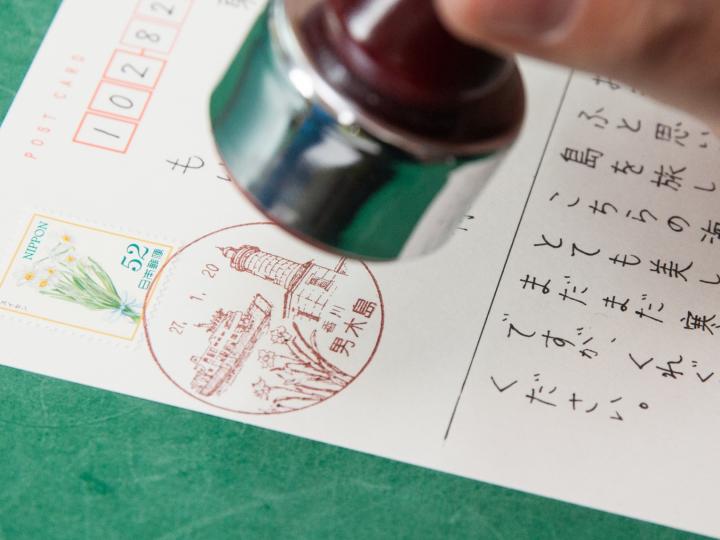 POST CARD
102 82
も
NIPPON
52
日本郵便
スイセン
27. 1. 20
香川
男木島
ふと思い
島を旅し
こちらの海
とても美し
まだまだ寒
ですが、くれぐ
ください。